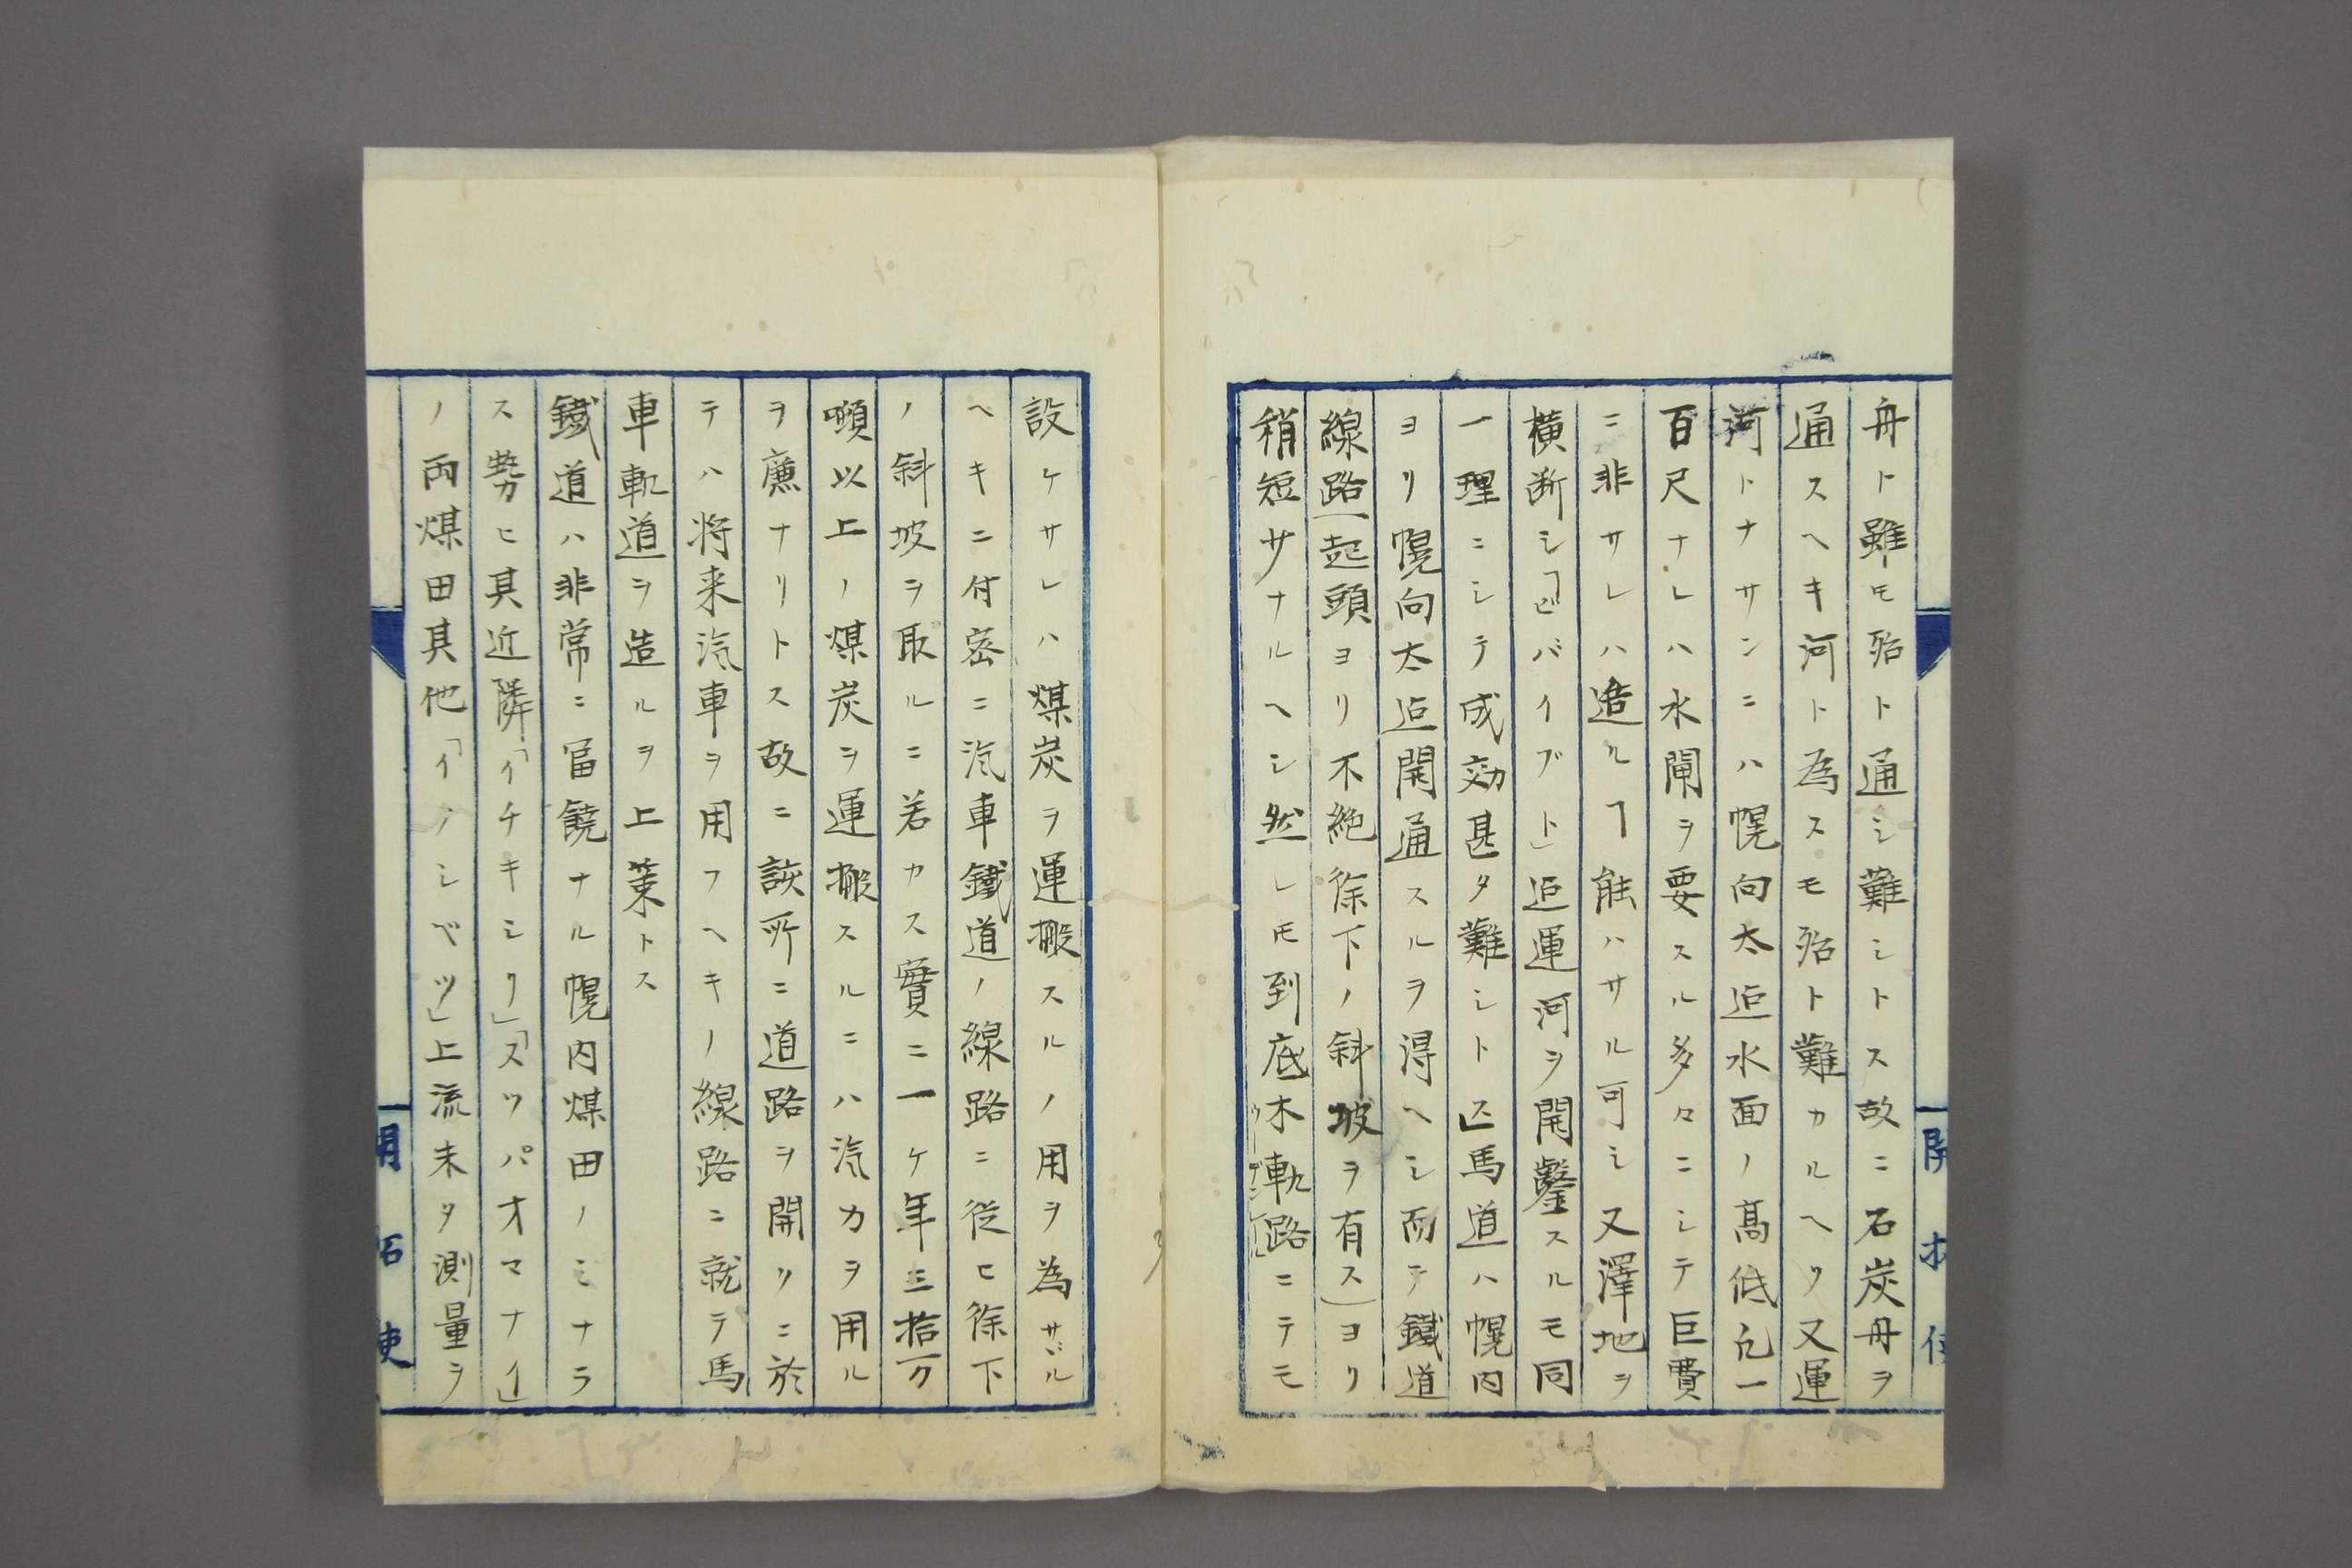 舟ト雖モ殆ト通シ難シトス故ニ石炭舟ヲ
通スヘキ河ト為スモ殆ト難カルヘク又運
河トナサンニハ幌向太迄水面ノ髙低凡一
百尺ナレハ水閘ヲ要スル多々ニシテ巨費
ニ非サレハ造ルヿ能ハサル可シ又澤地ヲ
横断シ「ビバイブト」迄運河ヲ開鑿スルモ同
一理ニシテ成効甚タ難シト𪜈馬道ハ幌内
ヨリ幌向太迄開通スルヲ得ヘシ而テ鐵道
線路(起頭ヨリ不絶徐下ノ斜坡ヲ有ス)ヨリ
稍短サナルヘシ然レモ到底木軌路ニテモ
設ケサレハ煤炭ヲ運搬スルノ用ヲ為サヾル
ヘキニ付密ニ汽車鐵道ノ線路ニ従ヒ徐下
ノ斜坡ヲ取ルニ若カス實ニ一ケ年三拾万
噸以上ノ煤炭ヲ運搬スルニハ汽力ヲ用ル
ヲ廉ナリトス故ニ該所ニ道路ヲ開クニ於
テハ将来汽車ヲ用フヘキノ線路ニ就テ馬
車軌道ヲ造ルヲ上策トス
鐵道ハ非常ニ冨饒ナル幌内煤田ノミナラ
ス勢ヒ其近隣「イチキシリ」「スツパオマナイ」
ノ両煤田其他「イノシベツ」上流未タ測量ヲ
開拓使
開拓使